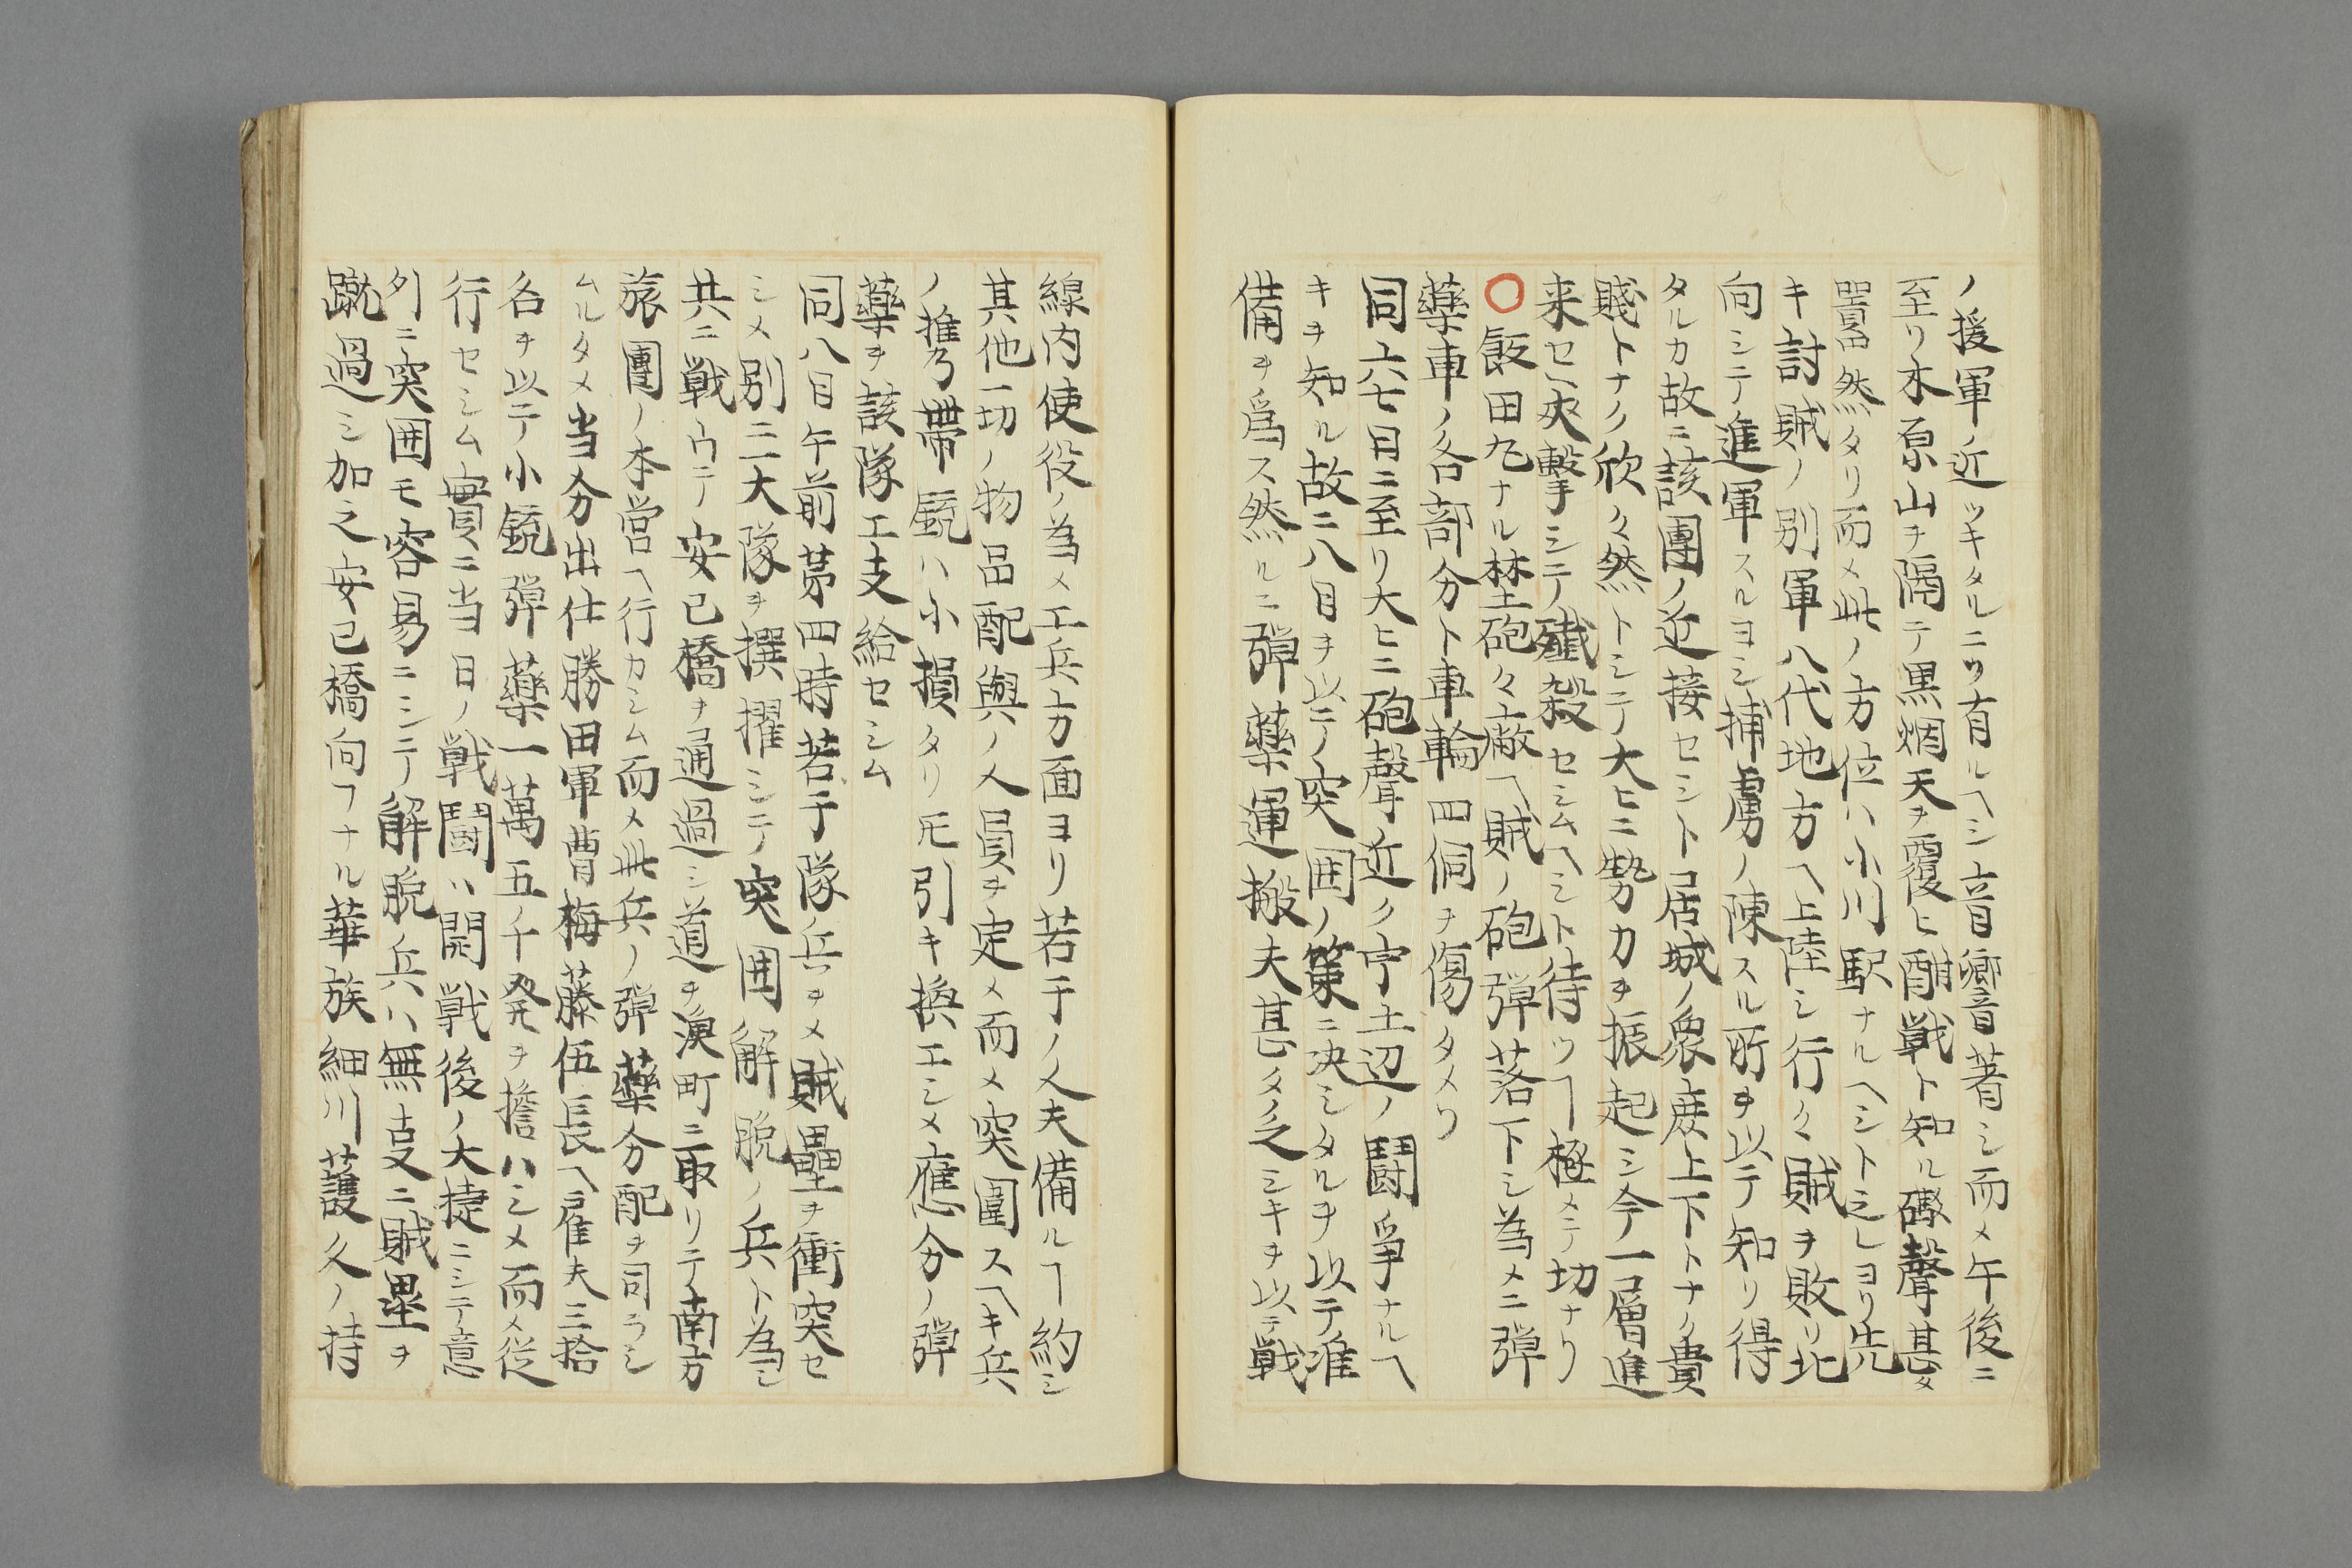 ノ援軍近ツキタルニヤ有ルヘシ音響著シ而メ午後ニ
至リ木原山ヲ隔テ黒烟天ヲ覆ヒ酣戦ト知ル礮聲甚タ
囂然タリ而メ此ノ方位ハ小川駅ナルヘシト之レヨリ先
キ討賊ノ別軍八代地方ヘ上陸シ行々賊ヲ敗リ北
向シテ進軍スルヨシ捕虜ノ陳スル所ヲ以テ知リ得
タルカ故ニ該團ノ近接セシト居城ノ衆庶上下トナク貴
賤トナク欣々然トシテ大ヒニ勢力ヲ振起シ今一層進
来セハ夾撃シテ殲殺セシムヘシト待ツヿ極メテ切ナリ
〇飯田丸ナル埜砲々廠ヘ賊ノ砲弾落下シ為メニ弾
藥車ノ各部分ト車輪四個ヲ傷タメリ
同六七日ニ至リ大ヒニ砲聲近ク宇土辺ノ鬪爭ナルヘ
キヲ知ル故ニ八日ヲ以テ突囲ノ策ニ决シタルヲ以テ准
備ヲ爲ス然ルニ弾藥運搬夫甚タ乏シキヲ以テ戦
線内使役ノ為メ工兵方面ヨリ若干ノ人夫備ルヿ約シ
其他一切ノ物品配與ノ人員ヲ定メ而メ突圍スヘキ兵
ノ携帶銃ハ小損タリ𪜈引キ換エシメ應分ノ弾
藥ヲ該隊エ支給セシム
同八日午前第四時若干隊ノ兵ヲメ賊壘ヲ衝突セ
シメ別ニ一大隊ヲ撰擢シテ突囲解脱ノ兵ト為シ
共ニ戦ウテ安已橋ヲ通過シ道ヲ漁町ニ取リテ南方
旅團ノ本営ヘ行カシム而メ此兵ノ弾藥分配ヲ司ラシ
ムルタメ当分出仕勝田軍曹梅藤伍長ヘ雇夫三拾
名ヲ以テ小銃弾藥一萬五千発ヲ擔ハシメ而メ従
行セシム實ニ当日ノ戦鬪ハ開戦後ノ大捷ニシテ意
外ニ突囲モ容易ニシテ解脱兵ハ無㕝ニ賊塁ヲ
蹴過シ加之安已橋向フナル華族細川護久ノ持